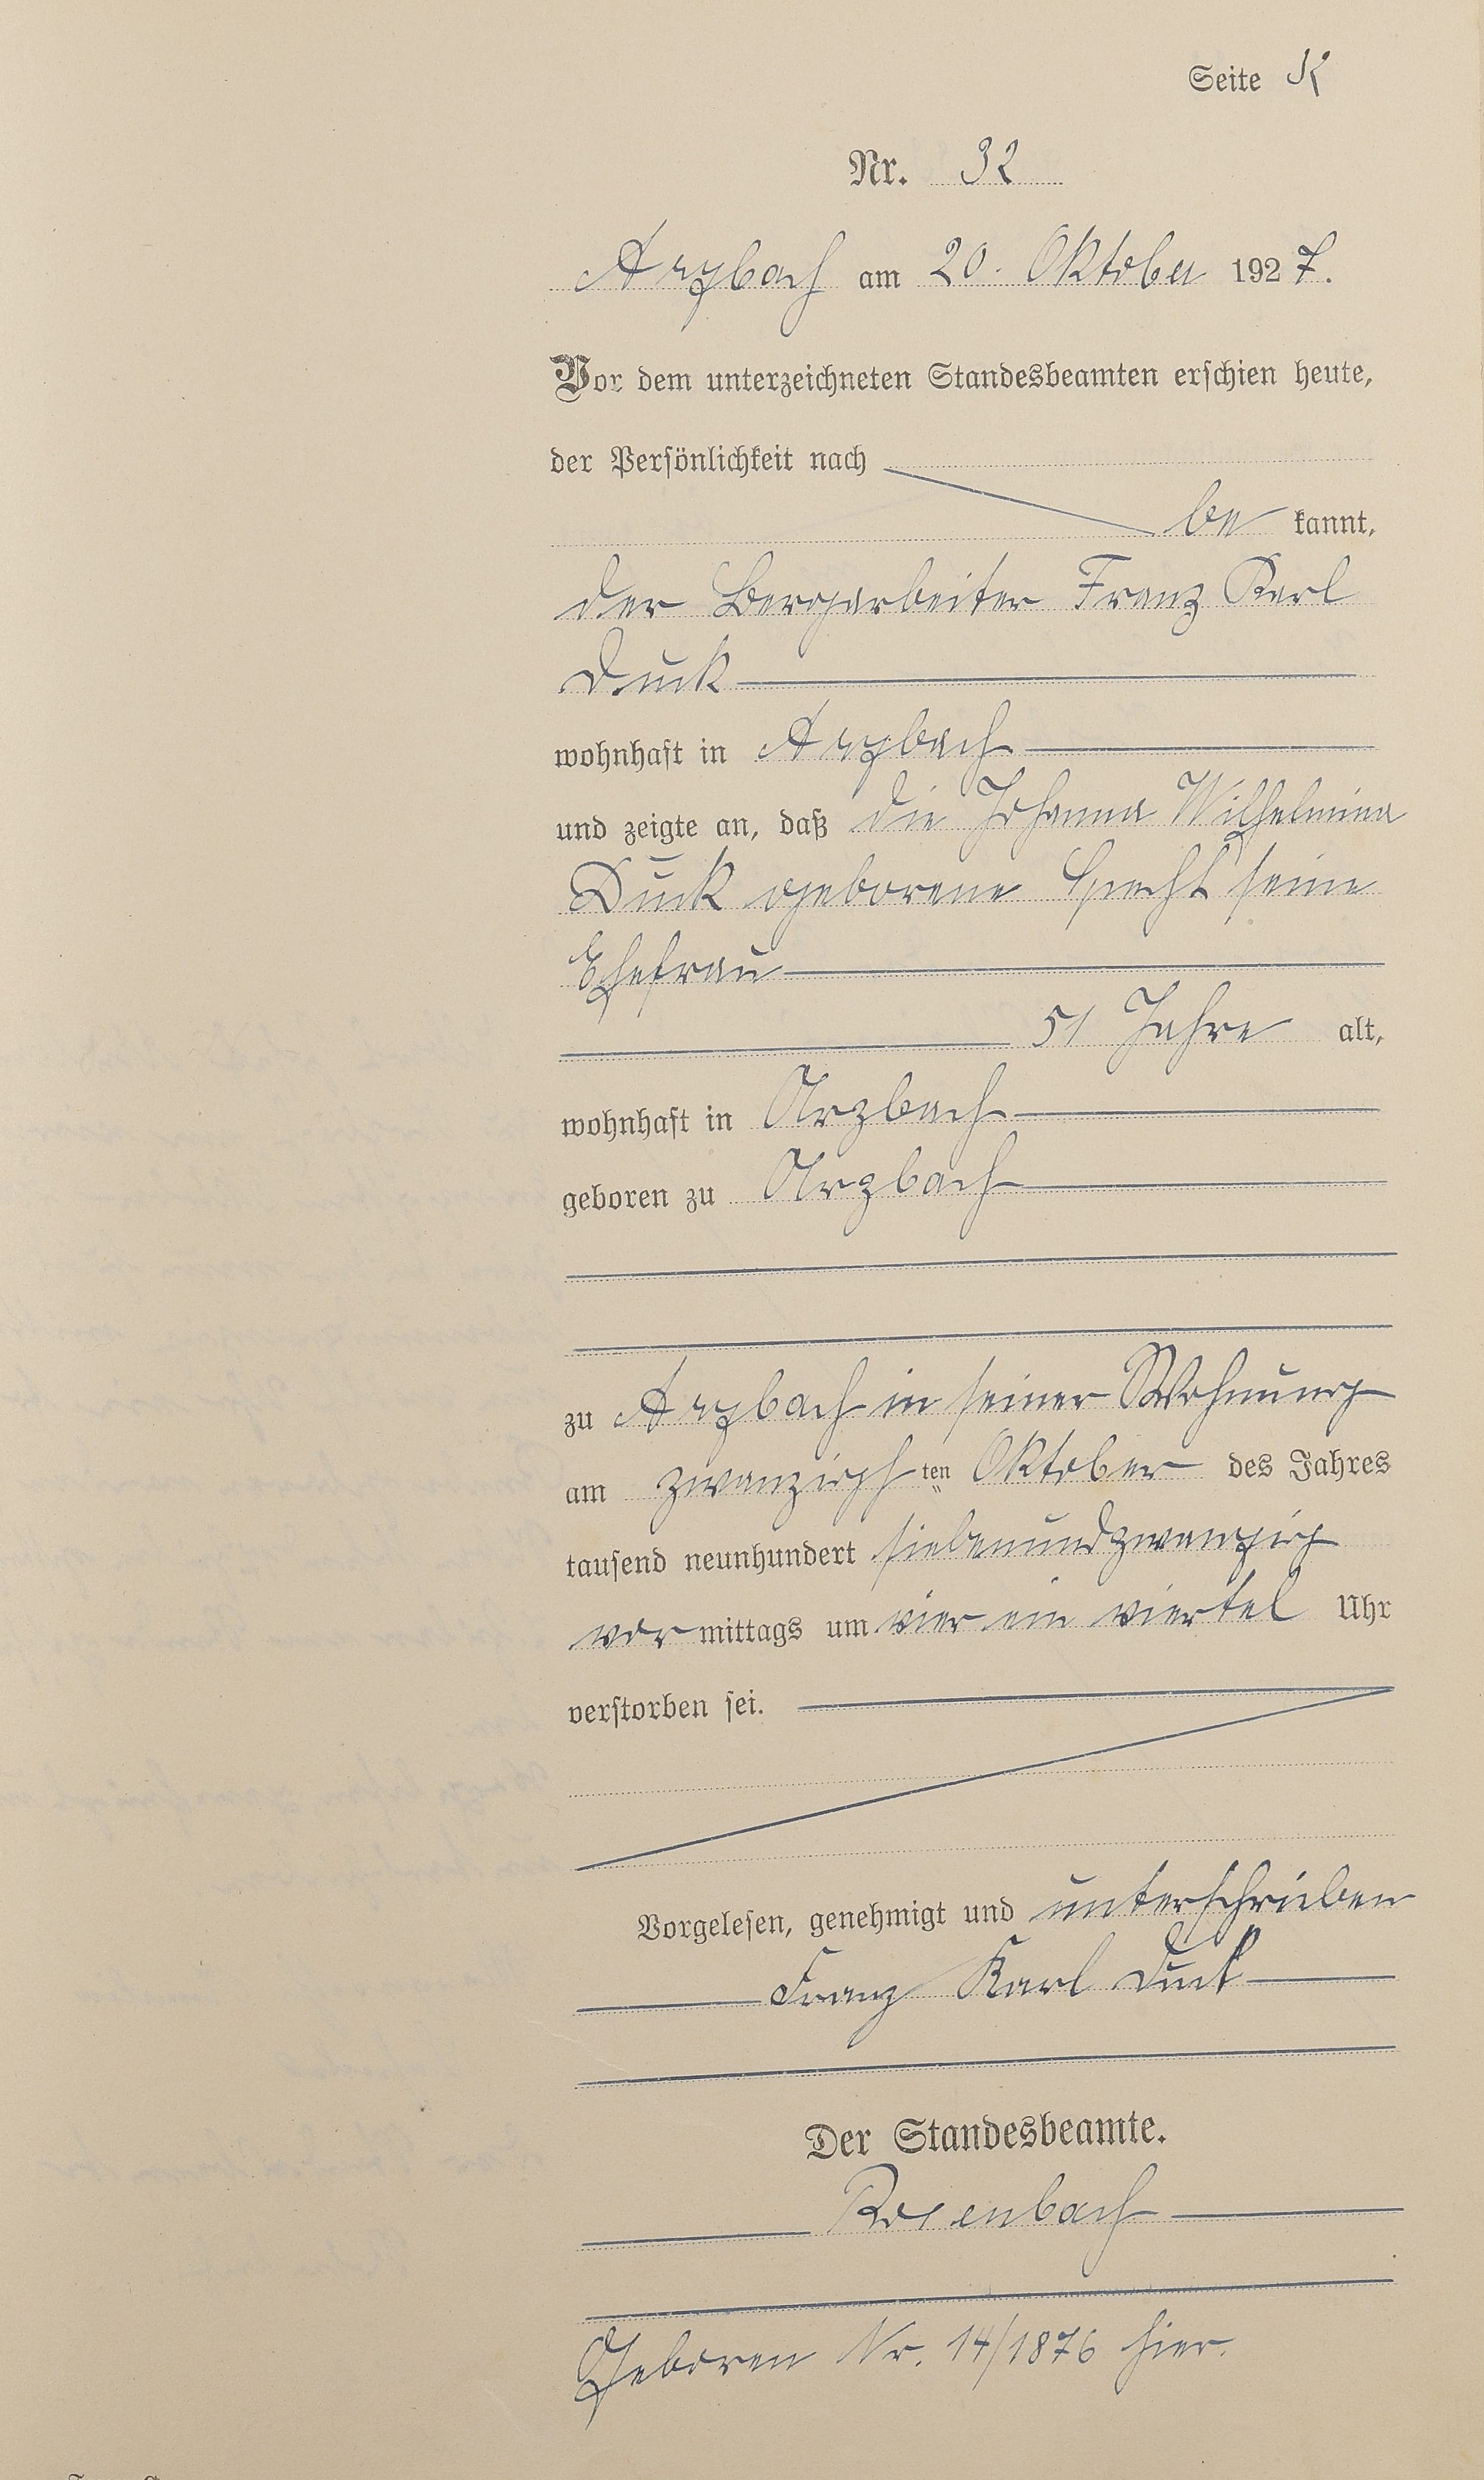 Seite K
Nr. 32
Arzbach am 20. Oktober 1927.
Vor dem unterzeichneten Standesbeamten erschien heute,
der Persönlichkeit nach
be kannt,
der Bergarbeiter Franz Karl
Duck
wohnhaft in Arzbach
und zeigte an, daß die Johanna Wilhelmina
Duck geborene Specht seine
Ehefrau
51 Jahre alt,
wohnhaft in Arzbach
geboren zu Arzbach
zu Arzbach in seiner Wohnung
am zwanzigsten Oktober des Jahres
tausend neunhundert siebenundzwanzig
vormittags um vier ein viertel Uhr
verstorben sei.
Vorgelesen, genehmigt und unterschrieben
Franz Karl Duck
Der Standesbeamte.
Rosenbach
Geboren Nr. 14/1876 hier.